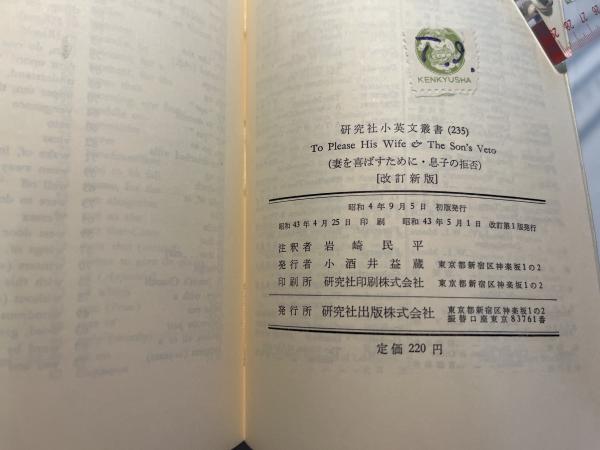 T.I.
KENKYUSHA
研究社小英文叢書 (235)
To Please His Wife & The Son's Veto
(妻を喜ばすために・息子の拒否)
[改訂新版]
昭和 4 年 9 月 5 日 初版発行
昭和 43 年 4 月 25 日 印 刷 昭和 43 年 5 月 1 日 改訂第1版発行
注釈者 岩崎民平
発行者 小酒井益蔵 東京都新宿区神楽坂1の2
印刷所 研究社印刷株式会社 東京都新宿区神楽坂1の2
発行所 研究社出版株式会社 東京都新宿区神楽坂1の2
振替口座東京83761番
定価 220 円